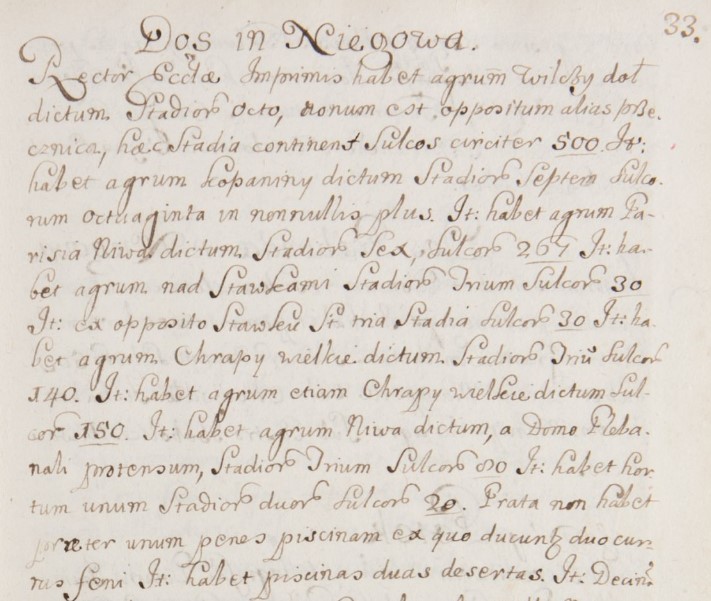 33.
Dos in Niegowa.
Rector Eccłae Imprimis habet agrum Wilczy doł
dictum Stadiors octo, nonum est oppositum alias prze,
cznica, haec Stadia continent Sulcos circiter 500. It:
habet agrum kopaniny dictum Stadiors Septem Sulco,
rum octuaginta in nonnullis plus. It: habet agrum Pa-
risia Niwa dictum Stadiors Sex, Sulcors 267 It: ha-
bet agrum nad Stawkami Stadiors Trium Sulcors 30
It: ex opposito Stawku St tria Stadia Sulcors 30 It: ha-
bet agrum Chrapy wielkie dictum Stadiors Triū Sulcors
140. It: habet agrum etiam Chrapy wielkie dictum Sul-
cors 150. It: habet agrum Niwa dictum, a Domo Pleba-
nali protensum, Stadiors Trium Sulcors 80 It: habet hor-
tum unum Stadiors duors Sulcors 20. Prata non habet
praeter unum penes piscinam ex quo ducuntz duo cur-
rus feni It: habet piscinas duas desertas. It: Decim